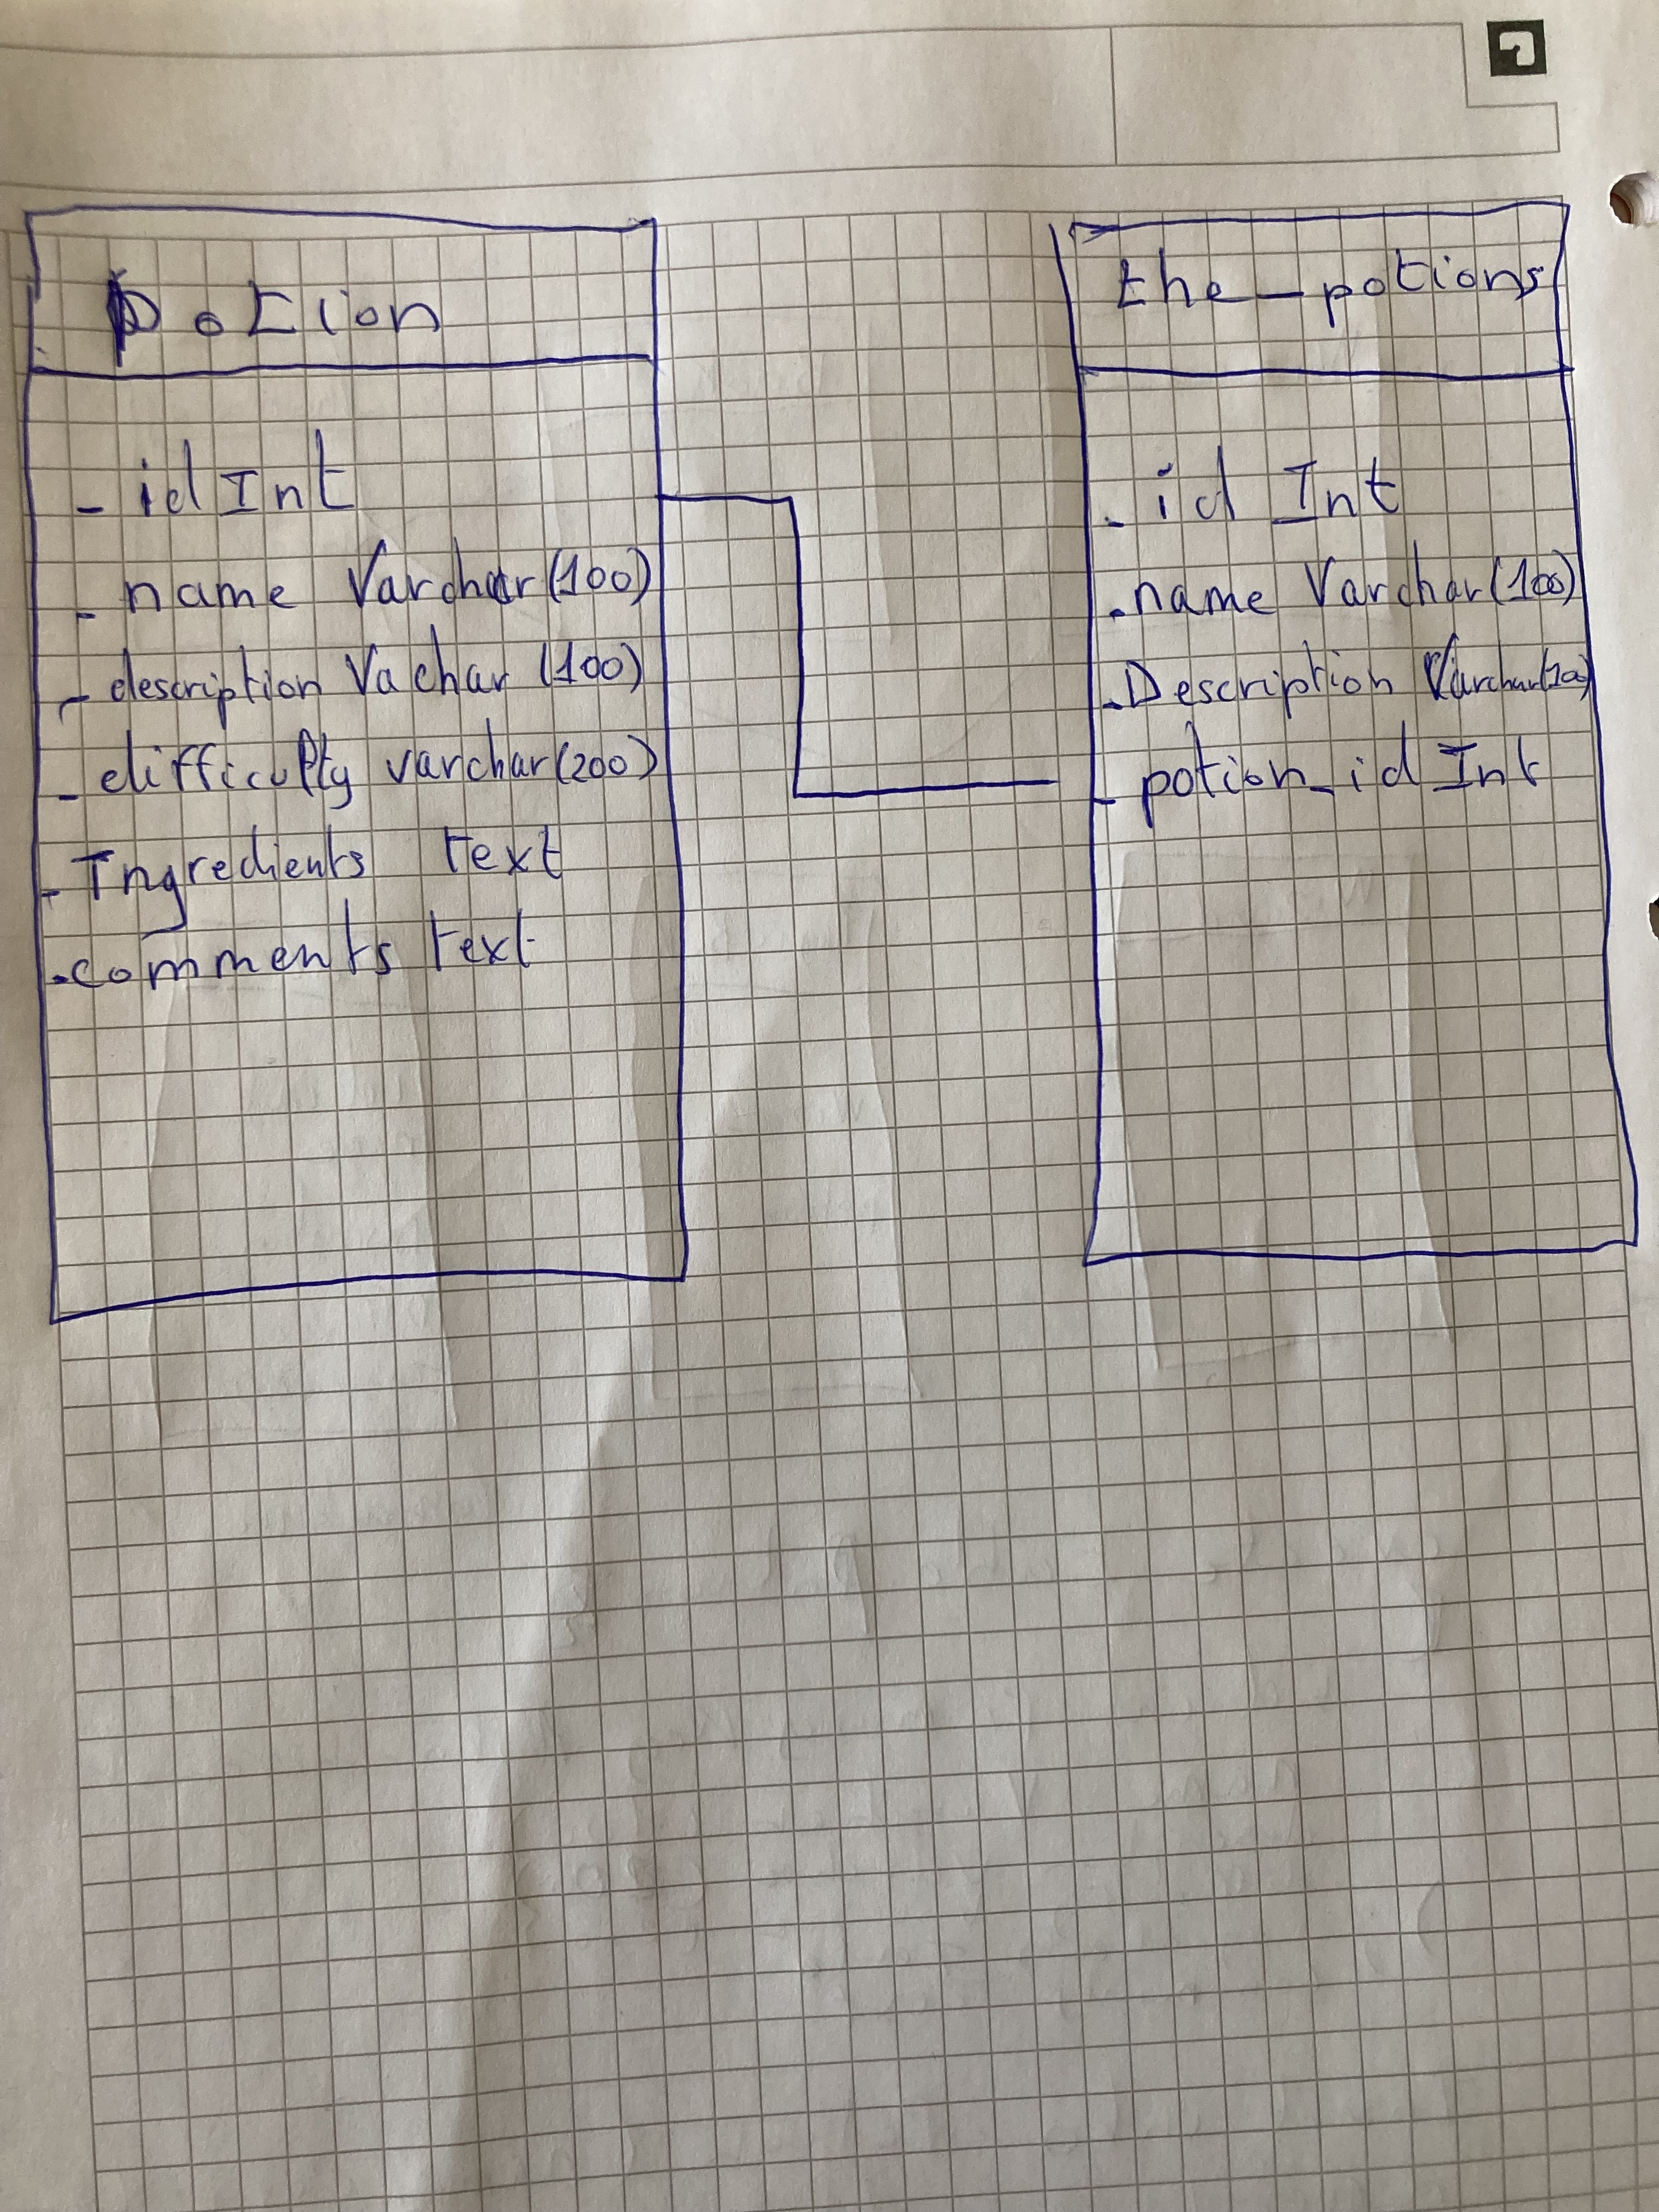 Potion
- id Int
- name Varchar(100)
- description Vachar (100)
- difficulty varchar(200)
- Ingredients text
- comments text
the_potions
- id Int
- name Varchar(100)
- Description Varchar(100)
- potion_id Int